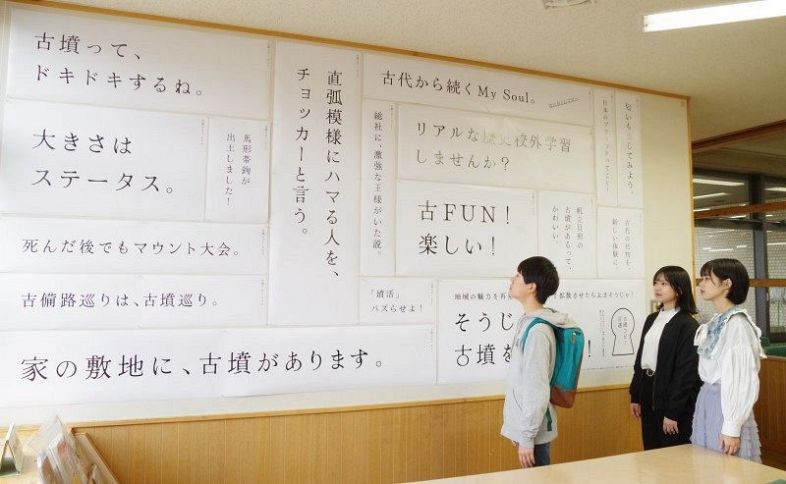 古墳って、
ドキドキするね。
大きさは
ステータス。
馬形帯鉤が
出土しました!
死んだ後でもマウント大会。
古備路巡りは、古墳巡り。
家の敷地に、古墳があります。
直弧模様にハマる人を、
チョッカーと言う。
古代から続くMy Soul。
総社に、激強な王様がいた説。
リアルな歴史校外学習
しませんか?
古FUN!
楽しい!
「墳活」
バズらせよ!
帆立貝形の
古墳があるって、
かわいい。
古代の社物を、
新しい体験に
地域の魅力を再
拡散させたらよさそうじか!
そうじ
古墳を
!